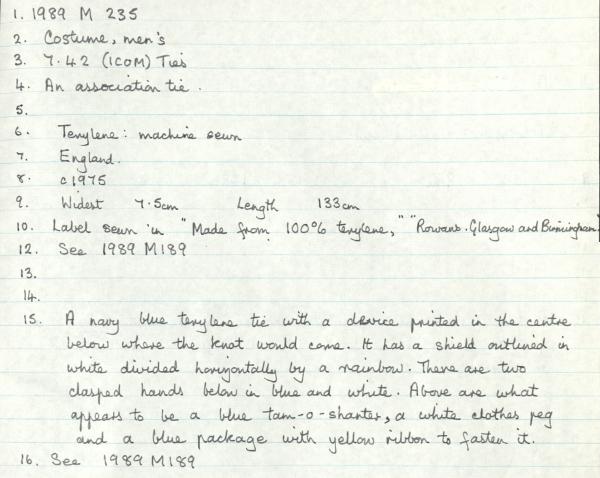 1. 1989 M 235
2. Costume, men's
3. 7.42 (ICOM) Ties
4. An association tie.
5.
6. Terylene: machine sewn
7. England.
8. c1975
9. Widest 7.5cm Length 133cm
10. Label sewn in "Made from 100% terylene," "Rowans. Glasgow and Birmingham.
12. See 1989 M189
13.
14.
15. A navy blue terylene tie with a device printed in the centre
below where the knot would come. It has a shield outlined in
white divided horizontally by a rainbow. There are two
clasped hands below in blue and white. Above are what
appears to be a blue tam-o-shanter, a white clothes peg
and a blue package with yellow ribbon to fasten it.
16. See 1989 M189